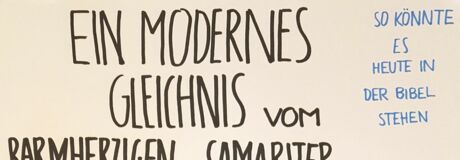 EIN MODERNES
GLEICHNIS VOM
BARMHERZIGEN SAMARITER
SO KÖNNTE
ES
HEUTE IN
DER BIBEL
STEHEN